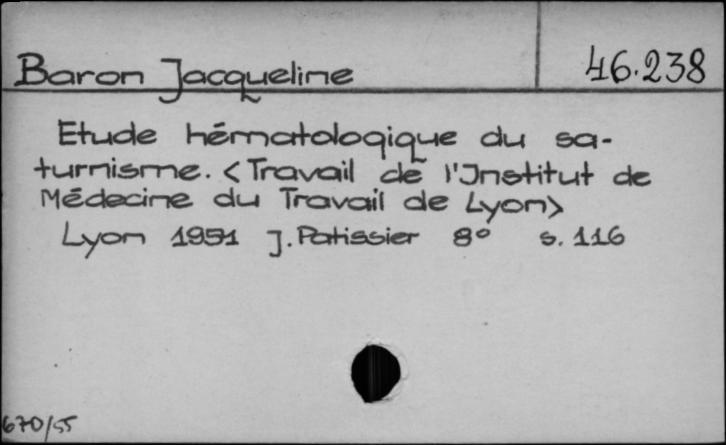 Baron Jacqueline 46.238
Etude hématologique du sa-
turnisme. <Travail de l'Institut de
Médecine du Travail de Lyon>
Lyon 1951 J. Patissier 8° s. 116
670/55